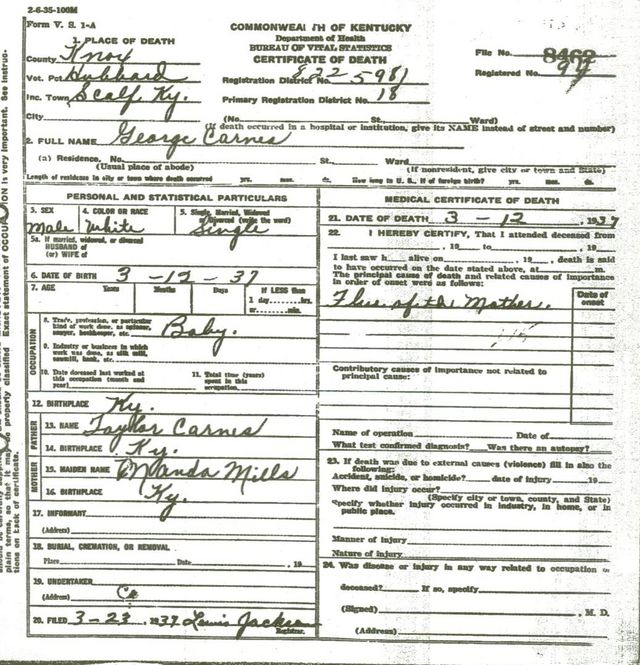 2-6-35-100M
Form V. S. 1-A
COMMONWEALTH OF KENTUCKY
Department of Health
BUREAU OF VITAL STATISTICS
CERTIFICATE OF DEATH
File No. 8462
Registered No. 94
1. PLACE OF DEATH
County Knox
Vot. Pct Hubbard
Inc. Town Scalf, Ky.
City
Registration District No. 822 5981
Primary Registration District No. 18
(No. St., Ward)
(If death occurred in a hospital or institution, give its NAME instead of street and number)
2. FULL NAME George Carnes
(a) Residence, No. St., Ward
(Usual place of abode) (If nonresident, give city or town and State)
Length of residence in city or town where death occurred yrs. mos. ds. How long in U. S., if of foreign birth? yrs. mos. ds.
PERSONAL AND STATISTICAL PARTICULARS
3. SEX 4. COLOR OR RACE 5. Single, Married, Widowed
or Divorced (write the word)
Male White Single
5a. If married, widowed, or divorced
HUSBAND of
(or) WIFE of
6. DATE OF BIRTH 3-12-37
7. AGE Years Months Days If LESS than
1 day hrs.
or min.
OCCUPATION
8. Trade, profession, or particular
kind of work done, as spinner,
sawyer, bookkeeper, etc. Baby.
9. Industry or business in which
work was done, as silk mill,
sawmill, bank, etc.
10. Date deceased last worked at
this occupation (month and
year)
11. Total time (years)
spent in this
occupation
12. BIRTHPLACE Ky.
FATHER
13. NAME Taylor Carnes
14. BIRTHPLACE Ky.
MOTHER
15. MAIDEN NAME Manda Mills
16. BIRTHPLACE Ky.
17. INFORMANT
(Address)
18. BURIAL, CREMATION, OR REMOVAL
Place Date , 19
19. UNDERTAKER
(Address)
20. FILED 3-23, 1937 Lewis Jackson
Registrar.
MEDICAL CERTIFICATE OF DEATH
21. DATE OF DEATH 3 - 12 , 1937
22. I HEREBY CERTIFY, That I attended deceased from
, 19 to , 19
I last saw h alive on , 19 , death is said
to have occurred on the date stated above, at m.
The principal cause of death and related causes of importance
in order of onset were as follows:
Date of
onset
Flue of the Mother.
Contributory causes of importance not related to
principal cause:
Name of operation Date of
What test confirmed diagnosis? Was there an autopsy?
23. If death was due to external causes (violence) fill in also the
following:
Accident, suicide, or homicide? date of injury 19
Where did injury occur?
(Specify city or town, county, and State)
Specify whether injury occurred in industry, in home, or in
public place.
Manner of injury
Nature of injury
24. Was disease or injury in any way related to occupation o
deceased? If so, specify
(Signed) , M. D.
(Address)
ION is very important. See instruc-
properly classified. Exact statement of OCCU
plain terms, so that it may be
tions on back of certificate.